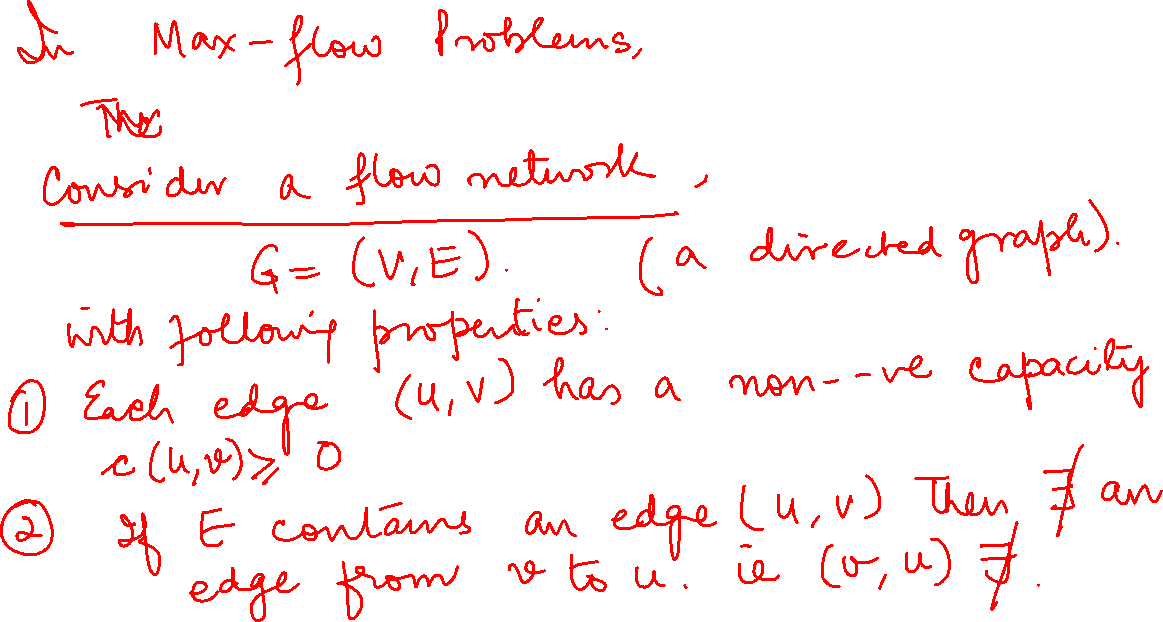 In Max-flow Problems,
Consider a flow network,
G = (V, E). (a directed graph).
with following properties:
① Each edge (u, v) has a non--ve capacity
c(u, v) ⩾ 0
② If E contains an edge (u, v) Then ∄ an
edge from v to u. ie (v, u) ∄.